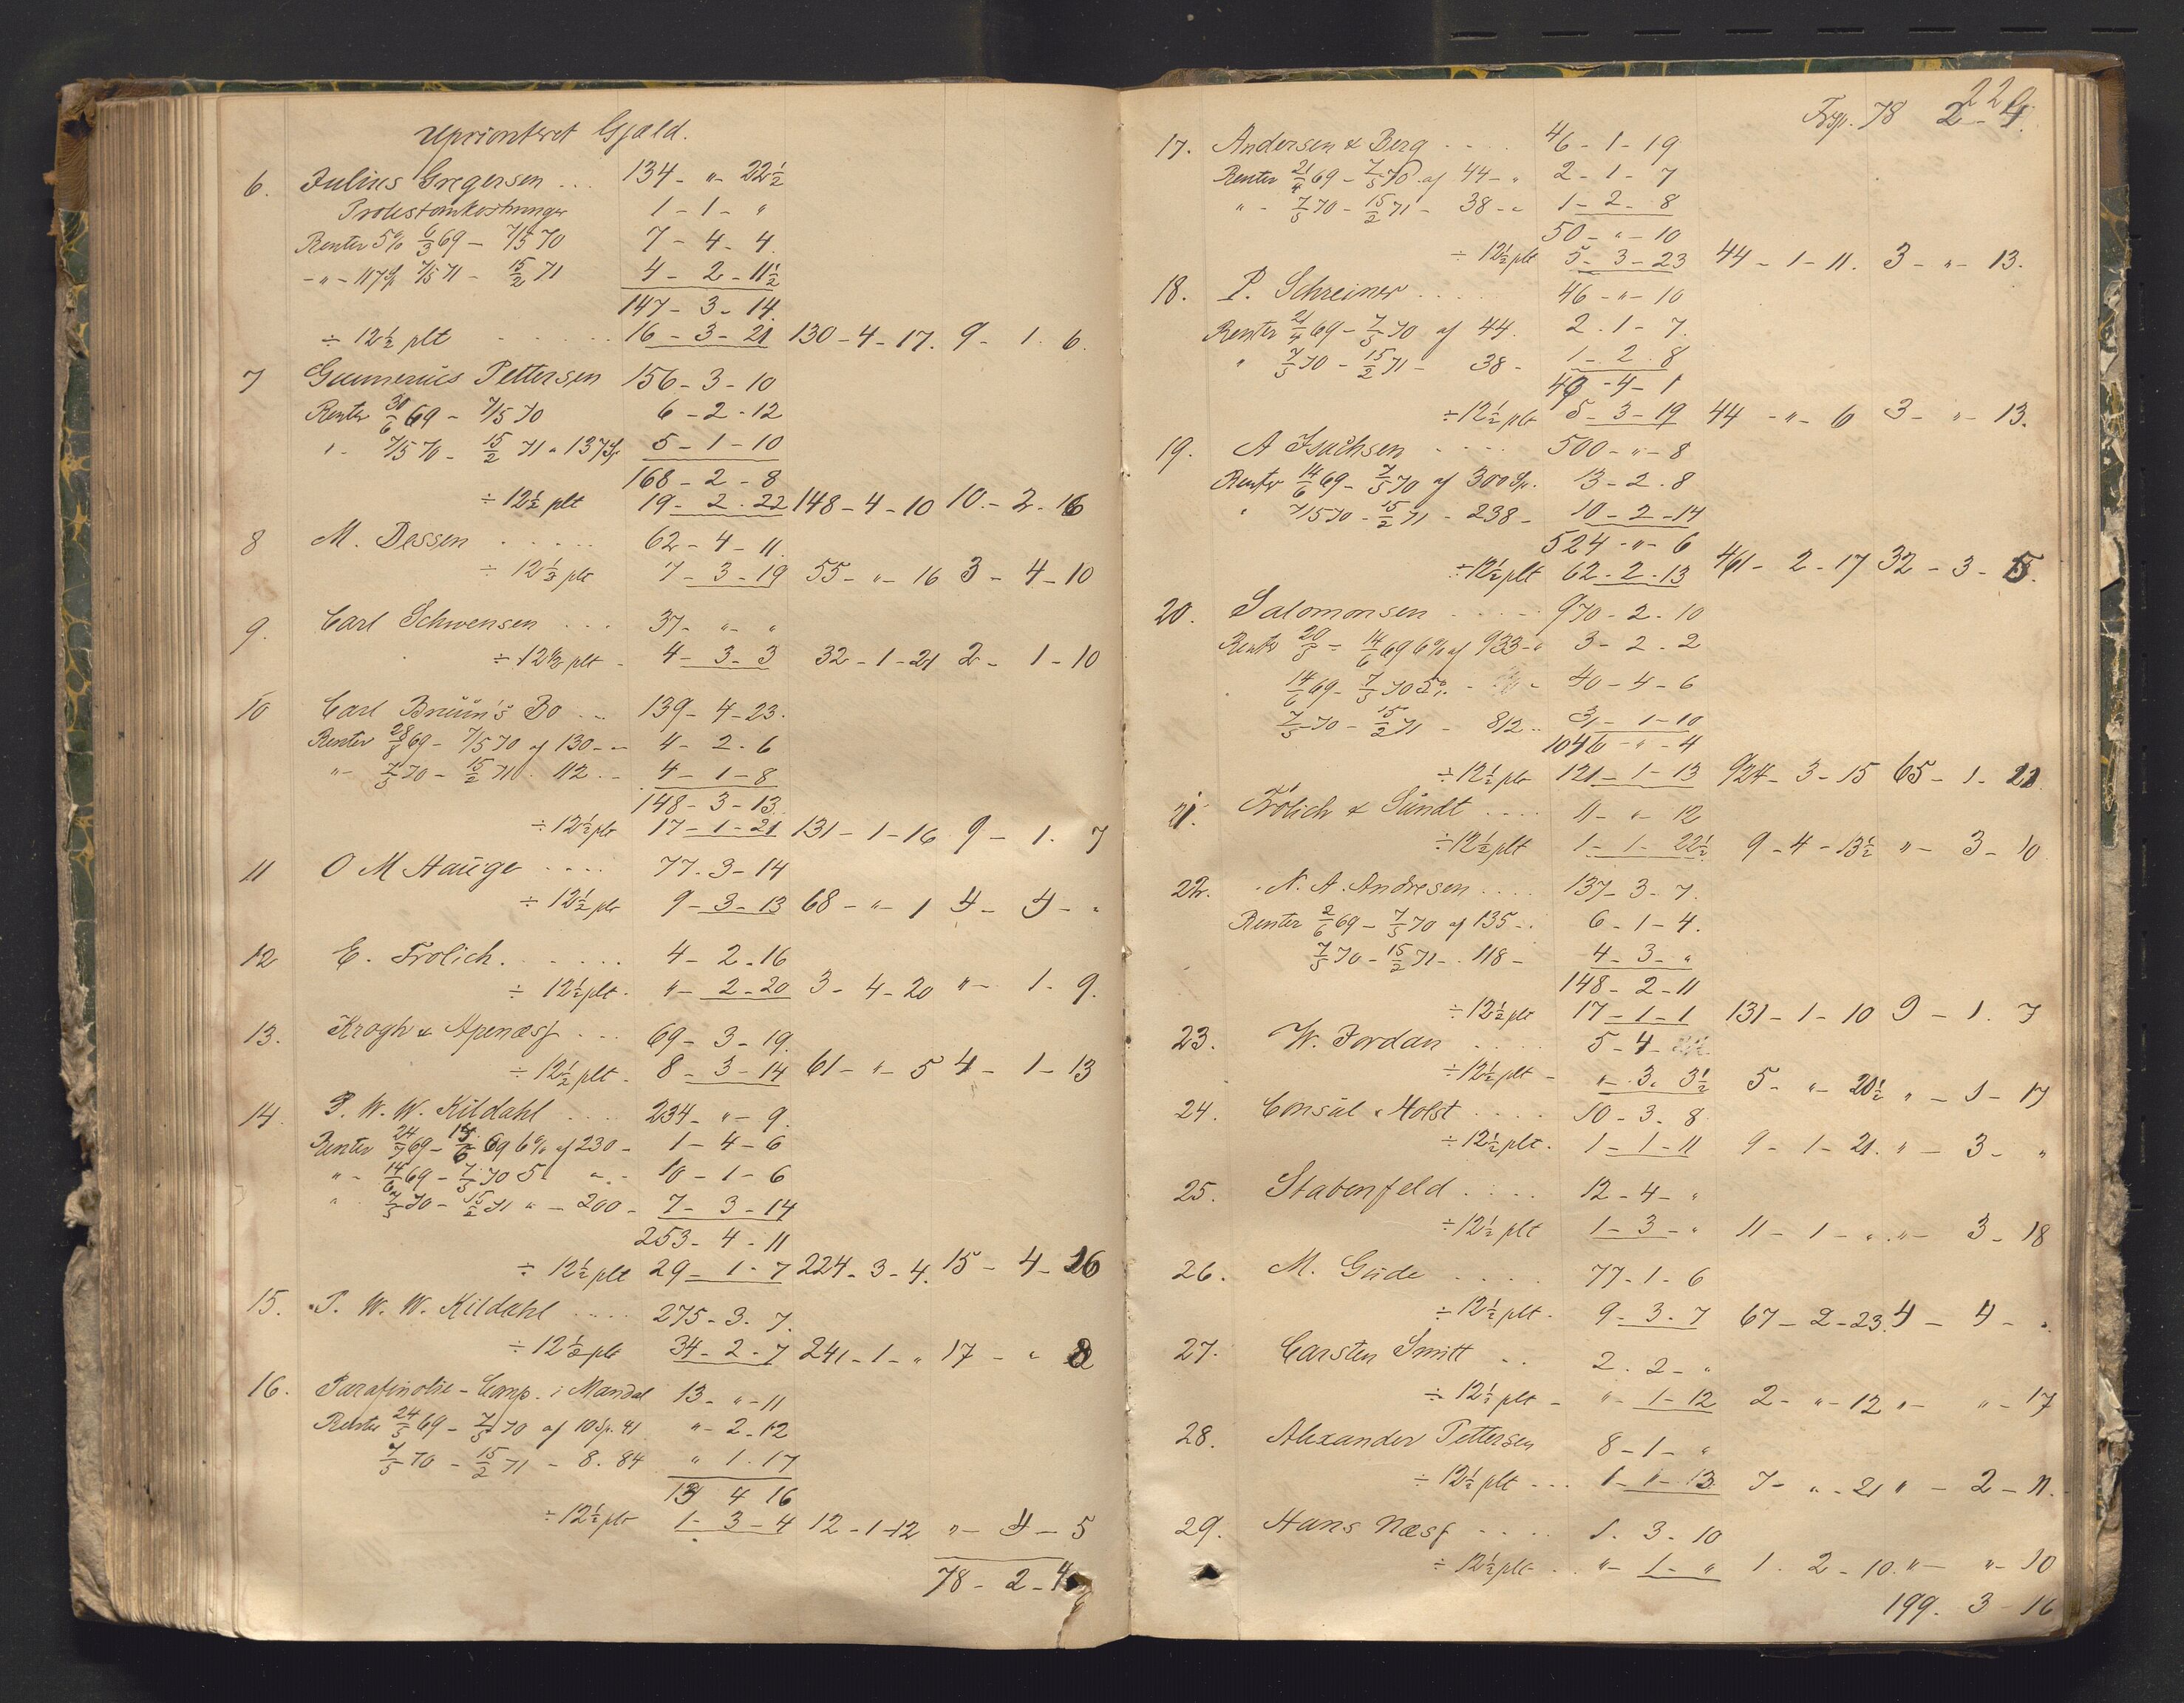 Uprioriteret Gjæld.
6. Julius Gregersen ... 134 - " - 22½
Protestomkostninger 1 - 1 - "
Renter 5% 6/3 69 - 7/5 70 7 - 4 - 4
- " - 117 Sp 7/5 71 - 15/2 71 4 - 2 - 11½
147 - 3 - 14
÷ 12½ plt ..... 16 - 3 - 21 130 - 4 - 17. 9 - 1 - 6.
7 Gunnerius Pettersen 156 - 3 - 10
Renter 30/6 69 - 7/5 70 6 - 2 - 12
" - 7/5 70 - 15/2 71 " 137 Sp 5 - 1 - 10
168 - 2 - 8
÷ 12½ plt 19 - 2 - 22 148 - 4 - 10 10 - 2 - 16
8 M. Dessen ..... 62 - 4 - 11.
÷ 12½ plt 7 - 3 - 19 55 - " - 16 3 - 4 - 10
9. Carl Schwensen ... 37 - " - "
÷ 12½ plt - 4 - 3 - 3 32 - 1 - 21 2 - 1 - 10
10 Carl Bruun's Bo ... 139 - 4 - 23.
Renter 28/8 69 - 7/5 70 af 130 - " 4 - 2 - 6
" - 7/5 70 - 15/2 71 - 112 - 4 - 1 - 8
148 - 3 - 13.
÷ 12½ plt 17 - 1 - 21 131 - 1 - 16 9 - 1 - 7
11 O M Hauge .... 77 - 3 - 14
÷ 12½ plt 9 - 3 - 13 68 - " - 1 4 - 4 - "
12 E. Frolich ...... 4 - 2 - 16
÷ 12½ plt - " - 2 - 20 3 - 4 - 20 " - 1 - 9.
13. Krogh & Apenæss ... 69 - 3 - 19.
÷ 12½ plt - 8 - 3 - 14 61 - " - 5 4 - 1 - 13
14. P. W. W. Kildahl .... 234 - " - 9.
Renter 24/4 69 - 14/6 69 6% af 230 - 1 - 4 - 6
" - 14/6 69 - 7/5 70 5 " - " - 10 - 1 - 6
" 7/5 70 - 15/2 71 " - 200 - 7 - 3 - 14
253 - 4 - 11
÷ 12½ plt 29 - 1 - 7 224 - 3 - 4. 15 - 4 - 16
15. P. W. W. Kildahl .... 275 - 3 - 7.
÷ 12½ plt 34 - 2 - 7 241 - 1 - " 17 - " 8
16. Parafinolie - Comp. i Mandal 13 - " - 11
Renter 24/5 69 - 7/5 70 af 10 Sp. 41 " - 2 - 12
7/5 70 - 15/2 71 - 8. 84 " 1 - 17
13 4 16
÷ 12½ plt 1 - 3 - 4 12 - 1 - 12 " - 4 - 5
78 - 2 - 4
Trsp. 78 2 - 4.
17. Andersen & Berg .... 46 - 1 - 19
Renter 21/4 69 - 7/5 70 af 44 - " 2 - 1 - 7
" - 7/5 70 - 15/2 71 - 38 - " 1 - 2 - 8
50 - " - 10
÷ 12½ plt 5 - 3 - 23 44 - 1 - 11. 3 - " - 13.
18. P. Schreiner .... 46 - " - 10
Renter 21/4 69 - 7/5 70 af 44. 2 - 1 - 7.
" 7/5 70 - 15/2 71 - 38 - 1 - 2 - 8
49 - 4 - 1
÷ 12½ plt 5 - 3 - 19 44 - " - 6 3 - " - 13.
19. A Isachsen .... 500 - " - 8
Renter 14/6 69 - 7/5 70 af 300 Sp. 13 - 2 - 8
" 7/5 70 - 15/2 71 - 238 - 10 - 2 - 14
524 - " - 6
÷ 12½ plt 62 - 2 - 13 461 - 2 - 17 32 - 3 - 5.
20. Salomonsen ..... 970 - 2 - 10
Renter 20/5 - 14/6 69 6% af 933 - " 3 - 2 - 2
14/6 69 - 7/5 70 5% - " - 40 - 4 - 6
7/5 70 - 15/2 71 - 812 .. 31 - 1 - 10
1046 - " - 4
÷ 12½ plt 121 - 1 - 13 924 - 3 - 15 65 - 1 - 21
21. Frölich & Sundt .... 11 - " - 12
÷ 12½ plt 1 - 1 - 22½ 9 - 4 - 13½ " - 3 - 10
22. N. A. Andresen .... 137 - 3 - 7.
Renter 2/6 69 - 7/5 70 af 135 - 6 - 1 - 4.
7/5 70 - 15/2 71 - 118 - 4 - 3 - "
148 - 2 - 11
÷ 12½ plt 17 - 1 - 1 131 - 1 - 10 9 - 1 - 7
23. W. Jordan .... 5 - 4 -
÷ 12½ plt - " - 3 - 3½ 5 - " - 20½ " - 1 - 17
24. Consul Holst .... 10 - 3 - 8
÷ 12½ plt. 1 - 1 - 11 9 - 1 - 21. " - 3 - "
25. Stabenfeld .... 12 - 4 - "
÷ 12½ plt 1 - 3 - " 11 - 1 - " " - 3 - 18
26. M. Gude .... 77 - 1 - 6
÷ 12½ plt - 9 - 3 - 7 67 - 2 - 23. 4 - 4 - "
27. Carsten Smitt .. 2 - 2 - "
÷ 12½ plt - " - 1 - 12 2 - " - 12 " - " - 17
28. Alexander Pettersen 8 - 1 - "
÷ 12½ plt ... 1 - " - 13 7 - " - 21 " - 2 - 11.
29. Hans Næss .... 1 - 3 - 10
÷ 12½ plt .. " - 1 - " 1 - 2 - 10. " - " - 10
199. 3 - 16